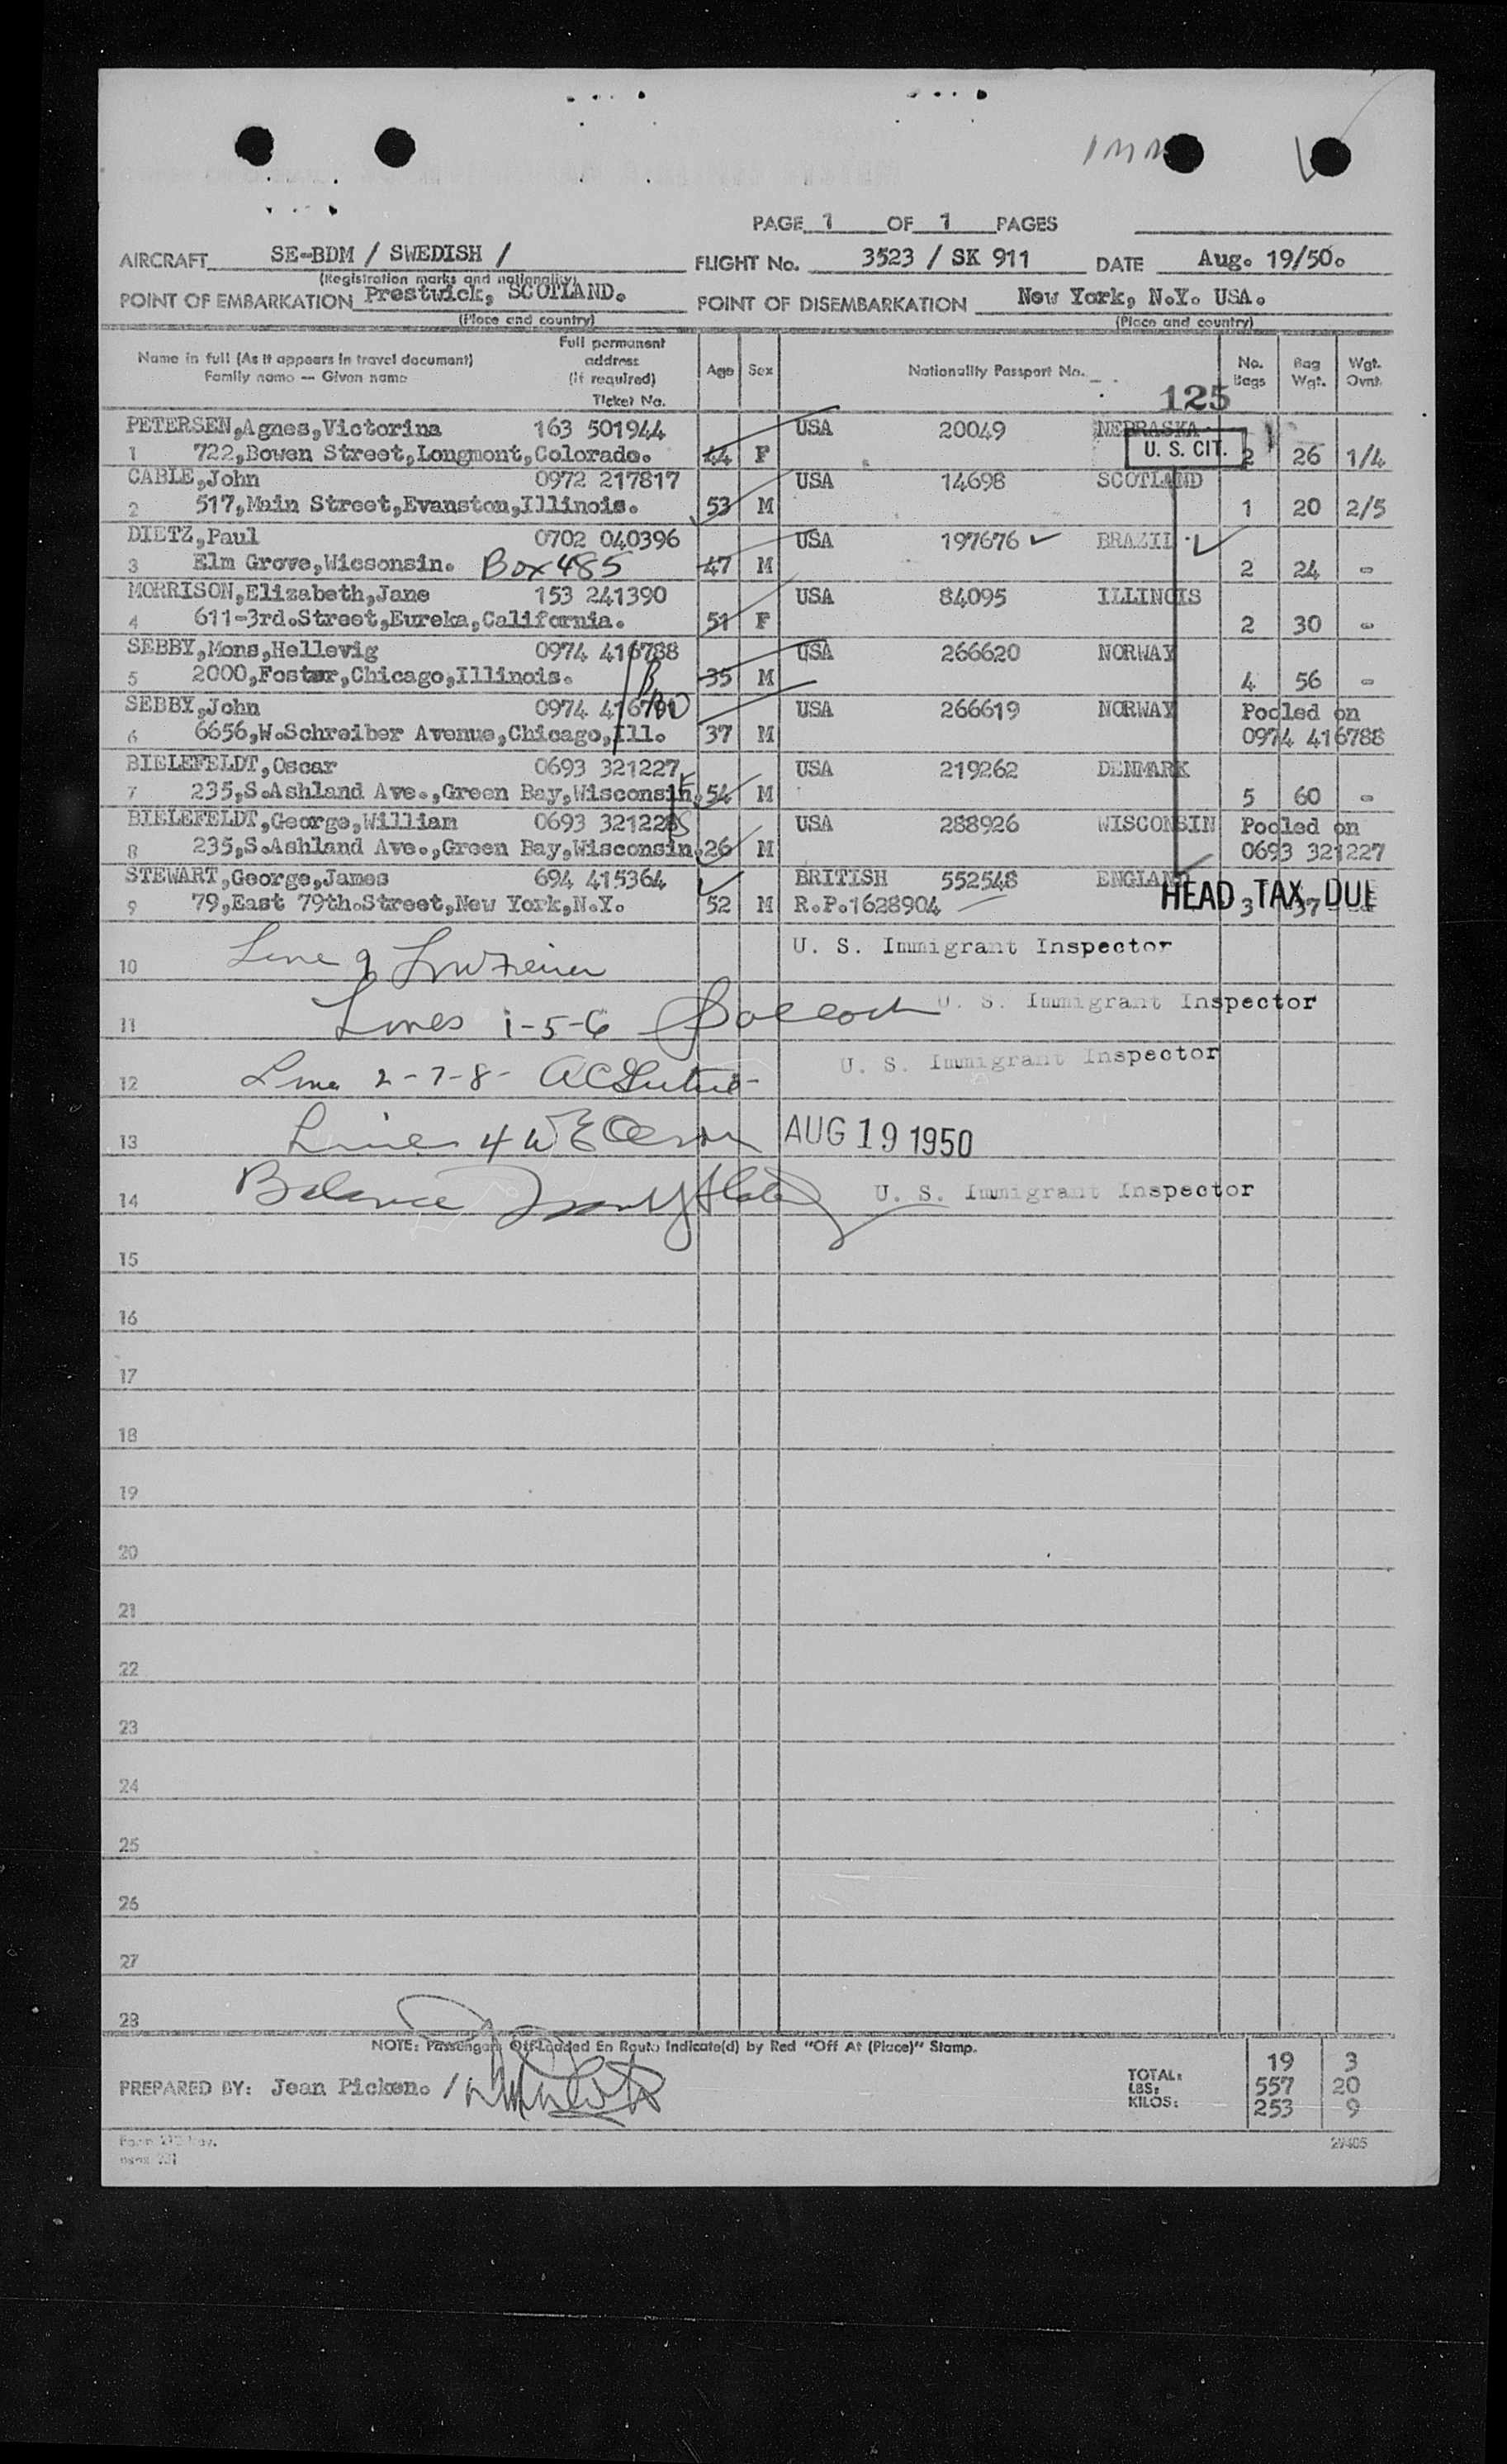 PAGE 1 OF 1 PAGES
AIRCRAFT SE-BDM / SWEDISH / FLIGHT No. 3523 / SK 911 DATE Aug. 19/50.
(Registration marks and nationality)
POINT OF EMBARKATION Prestwick, SCOTLAND. POINT OF DISEMBARKATION New York, N.Y. USA.
(Place and country) (Place and country)
Name in full (As it appears in travel document) Family name — Given name Full permanent address (if required) Ticket No. Age Sex Nationality Passport No. No. Bags Bag Wgt. Wgt. Ovnt.
125
PETERSEN,Agnes,Victorina 163 501944 USA 20049 NEBRASKA
U. S. CIT.
1 722,Bowen Street,Longmont,Colorado. 44 F 2 26 1/4
CABLE,John 0972 217817 USA 14698 SCOTLAND
2 517,Main Street,Evanston,Illinois. 53 M 1 20 2/5
DIETZ,Paul 0702 040396 USA 197676 BRAZIL
3 Elm Grove,Wicsonsin. Box 485 47 M 2 24 -
MORRISON,Elizabeth,Jane 153 241390 USA 84095 ILLINOIS
4 611-3rd.Street,Eureka,California. 51 F 2 30 -
SEBBY,Mons,Hellevig 0974 416788 USA 266620 NORWAY
5 2000,Foster,Chicago,Illinois. 35 M 4 56 -
SEBBY,John 0974 USA 266619 NORWAY Pooled on
6 6656,W.Schreiber Avenue,Chicago,Ill. 37 M 0974 416788
BIELEFELDT,Oscar 0693 321227 USA 219262 DENMARK
7 235,S.Ashland Ave.,Green Bay,Wisconsin. 54 M 5 60 -
BIELEFELDT,George,Willian 0693 321228 USA 288926 WISCONSIN Pooled on
8 235,S.Ashland Ave.,Green Bay,Wisconsin. 26 M 0693 321227
STEWART,George,James 694 415364 BRITISH 552548 ENGLAND
HEAD TAX DUE
9 79,East 79th.Street,New York,N.Y. 52 M R.P.1628904 3 37
Line 9 U. S. Immigrant Inspector
10
Lines 1-5-6 U. S. Immigrant Inspector
11
12 Line 2-7-8- U. S. Immigrant Inspector
13 Line 4 AUG 19 1950
14 Balance U. S. Immigrant Inspector
15
16
17
18
19
20
21
22
23
24
25
26
27
28
NOTE: Passengers Off-Loaded En Route Indicate(d) by Red "Off At (Place)" Stamp.
PREPARED BY: Jean Picken. /
TOTAL: 19 3
LBS: 557 20
KILOS: 253 9
29405